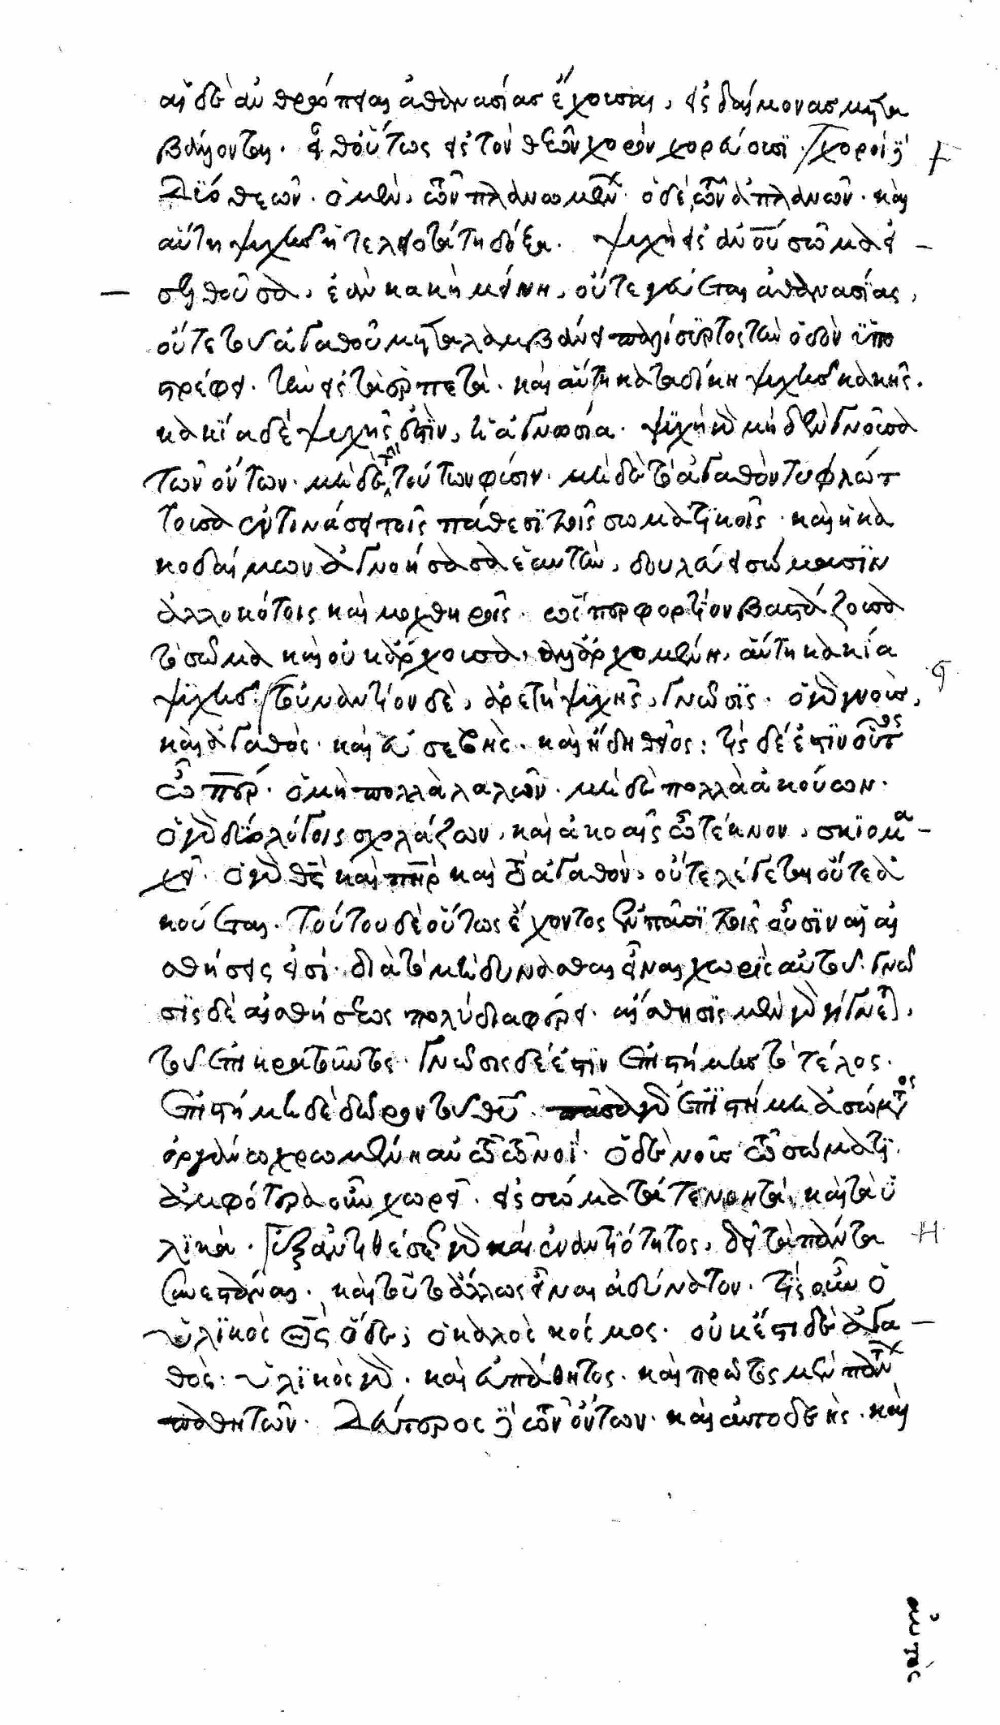 αἱ δὲ ἀνθρώπειαι ἀθανασίας ἔχουσαι, εἰς δαίμονας μετα
βάλλονται. εἶθ' οὕτως εἰς τὸν θεῶν χορὸν χορεύουσι. χοροὶ δὲ
δύο θεῶν. ὁ μὲν, τῶν πλανωμένων. ὁ δὲ, τῶν ἀπλανῶν. καὶ
αὕτη ψυχῆς ἡ τελειοτάτη δόξα. ψυχὴ εἰς ἀνου σῶμα εἰ
σελθοῦσα, ἐὰν κακὴ μείνη, οὔτε γεύεται ἀθανασίας,
οὔτε τοῦ ἀγαθοῦ μεταλαμβάνει παλίσυρτος τὴν ὁδὸν ὑπο
στρέφει. τὴν εἰς τὰ ἑρπετά. καὶ αὕτη καταδίκη ψυχῆς κακῆς.
κακία δὲ ψυχῆς ἐστὶν, ἡ ἀγνωσία. ψυχὴ γὰρ μηδὲν γνοῦσα
τῶν ὄντων. μηδὲ τὴν τούτων φύσιν. μηδὲ τὸ ἀγαθὸν τυφλώτ
τουσα ἐντινάσει τοῖς πάθεσι τοῖς σωματικοῖς. καὶ ἡ κα
κοδαίμων ἀγνοήσασα ἑαυτὴν, δουλεύει σώμασιν
ἀλλοκότοις καὶ μοχθηροῖς. ὥσπερ φορτίον βαστάζουσα
τὸ σῶμα καὶ οὐκ ἄρχουσα, ἀλλ' ἀρχομένη. αὕτη κακία
ψυχῆς. τοὐναντίον δὲ, ἀρετὴ ψυχῆς, γνῶσις. ὁ γὰρ γνοὺς,
καὶ ἀγαθὸς. καὶ εὐσεβὴς. καὶ ἤδη θεῖος: τίς δέ ἐστιν οὗτος
ὦ περ. ὁ μὴ πολλὰ λαλῶν. μηδὲ πολλὰ ἀκούων.
ὁ γὰρ διαλόγοις σχολάζων, καὶ ἀκοαῖς ὦ τέκνον, σκιομα
χεῖ. ὁ γὰρ θς καὶ πηρ καὶ τὸ ἀγαθὸν, οὔτε λέγεται οὔτε ἀ
κούεται. τούτου δὲ οὕτως ἔχοντος ἐν πᾶσι τοῖς οὖσιν αἱ αἰ
σθήσεις εἰσί. διὰ τὸ μὴ δύνασθαι εἶναι χωρὶς αὐτοῦ. γνῶ
σις δὲ αἰσθήσεως πολὺ διαφέρει. αἴσθησις μὲν γὰρ γίγνεται,
τοῦ ἐπικρατοῦντος. γνῶσις δέ ἐστιν ἐπιστήμης τὸ τέλος.
ἐπιστήμη δὲ δῶρον τοῦ θῦ. πᾶσα γὰρ ἐπιστήμη ἀσώματος
ὀργάνω χρωμένη αὐτῶ τῶ νοΐ. ὁ δὲ νοῦς τῶ σώματι.
ἀμφότερα οὖν χωρεῖ. εἰς σῶμα τά τε νοητὰ, καὶ τὰ ὑ
λικά. ἐξ ἀντιθέσεως γὰρ καὶ ἐναντιότητος, δεῖ τὰ πάντα
συνεστάναι. καὶ τοῦτο ἄλλως εἶναι ἀδύνατον. τίς οὖν ὁ
ὑλικὸς θς ὅδε; ὁ καλὸς κόσμος. οὐκ ἔστι δὲ ἀγα
θὸς. ὑλικὸς γὰρ. καὶ εὐπάθητος. καὶ πρῶτος μὲν πάντων
παθητῶν. δεύτερος δὲ τῶν ὄντων. καὶ αὐτοδεὴς. καὶ